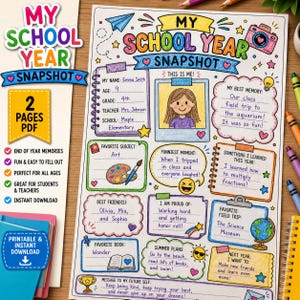 MY
SCHOOL
YEAR
SNAPSHOT
2
PAGES
PDF
END OF YEAR MEMORIES
FUN & EASY TO FILL OUT
PERFECT FOR ALL AGES
GREAT FOR STUDENTS
& TEACHERS
INSTANT DOWNLOAD
PRINTABLE &
INSTANT
DOWNLOAD
MY
SCHOOL YEAR
SNAPSHOT
MY NAME: Emma Smith
AGE: 9
GRADE: 4th
TEACHER: Mrs. Johnson
SCHOOL: Maple
Elementary
THIS IS ME!
MY BEST MEMORY:
Our class
field trip to
the aquarium!
It was so fun!
FAVORITE SUBJECT:
Art
FUNNIEST MOMENT:
When I tripped
in class and
everyone laughed!
SOMETHING I LEARNED
THIS YEAR:
I learned how
to multiply
fractions!
BEST FRIENDS:
Olivia, Mia,
and Sophia
I AM PROUD OF:
Working hard
and getting
honor roll!
FAVORITE
FIELD TRIP:
The
Science
Museum
FAVORITE BOOK:
Wonder
SUMMER PLANS:
Go to the beach,
read lots of books,
and swim!
NEXT YEAR,
I WANT TO:
Make new
friends and
learn even
more!
MESSAGE TO MY FUTURE SELF:
Keep being kind, keep trying your best,
and never give up on your dreams!